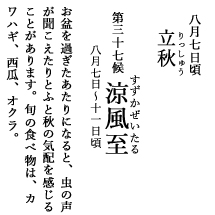 八月七日頃
りっしゅう
立秋
第三十七候
すずかぜいたる
涼風至
八月七日〜十一日頃
お盆を過ぎたあたりになると、虫の声
が聞こえたりとふと秋の気配を感じる
ことがあります。旬の食べ物は、カ
ワハギ、西瓜、オクラ。